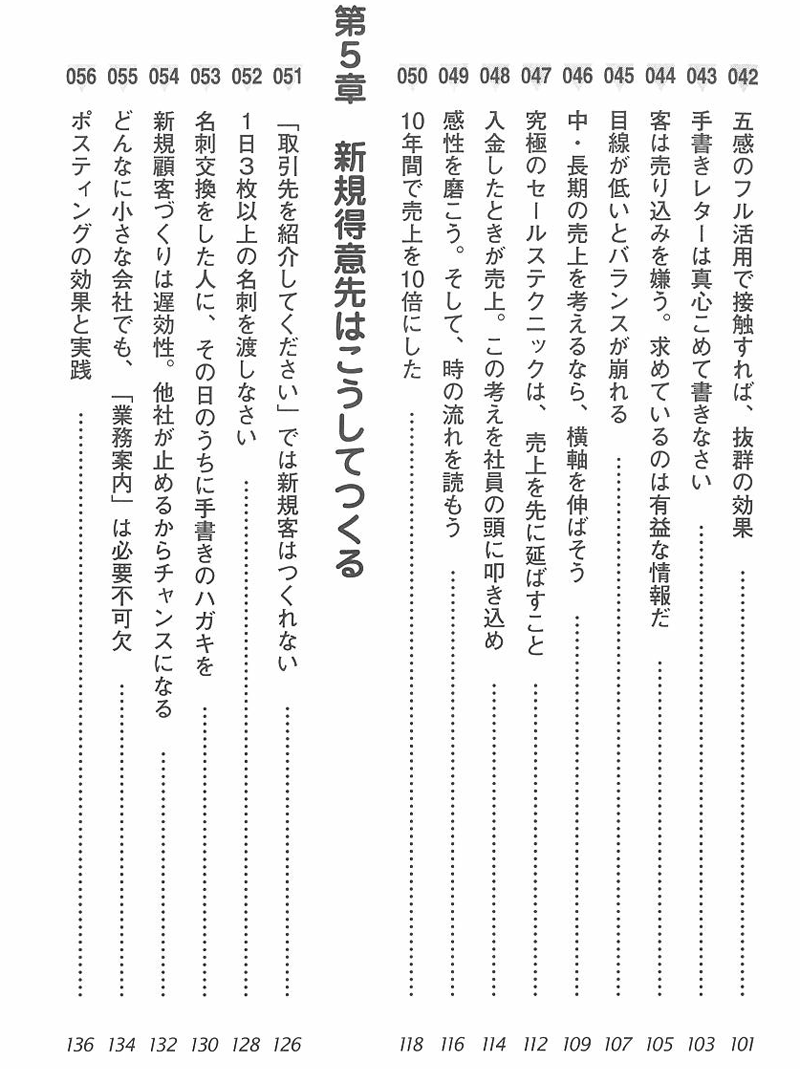 042 五感のフル活用で接触すれば、抜群の効果 101
043 手書きレターは真心こめて書きなさい 103
044 客は売り込みを嫌う。求めているのは有益な情報だ 105
045 目線が低いとバランスが崩れる 107
046 中・長期の売上を考えるなら、横軸を伸ばそう 109
047 究極のセールステクニックは、売上を先に延ばすこと 112
048 入金したときが売上。この考えを社員の頭に叩き込め 114
049 感性を磨こう。そして、時の流れを読もう 116
050 10年間で売上を10倍にした 118
第5章 新規得意先はこうしてつくる
051 「取引先を紹介してください」では新規客はつくれない 126
052 1日3枚以上の名刺を渡しなさい 128
053 名刺交換をした人に、その日のうちに手書きのハガキを 130
054 新規顧客づくりは遅効性。他社が止めるからチャンスになる 132
055 どんなに小さな会社でも、「業務案内」は必要不可欠 134
056 ポスティングの効果と実践 136